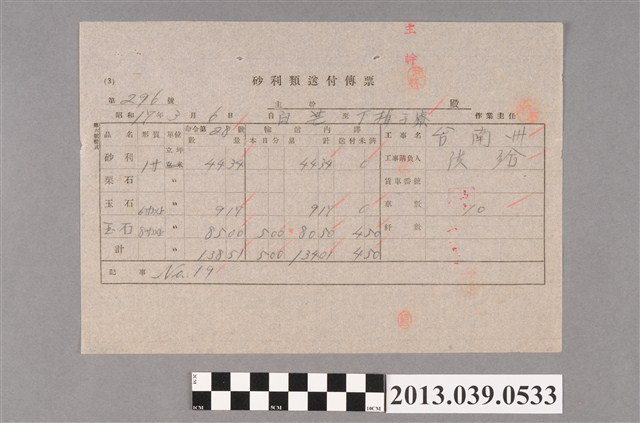 主
(3) 砂利類送付傳票
第 296 號 主計 殿
昭和 17 年 3 月 6 日 自 至 作業主任
品名 形質 單位 命令第 28 號 數量 輸送内譯 本日分 累計 送付未濟 工事名 台南州
砂利 立坪 4434 4434 0 工事請負人 陳
栗石 〃 貨車番號
玉石 〃 917 917 0 車數 10
玉石 〃 8500 500 8050 450
計 13851 500 13401 450
記事 No. 19
1CM 5CM 10CM
2013.039.0533